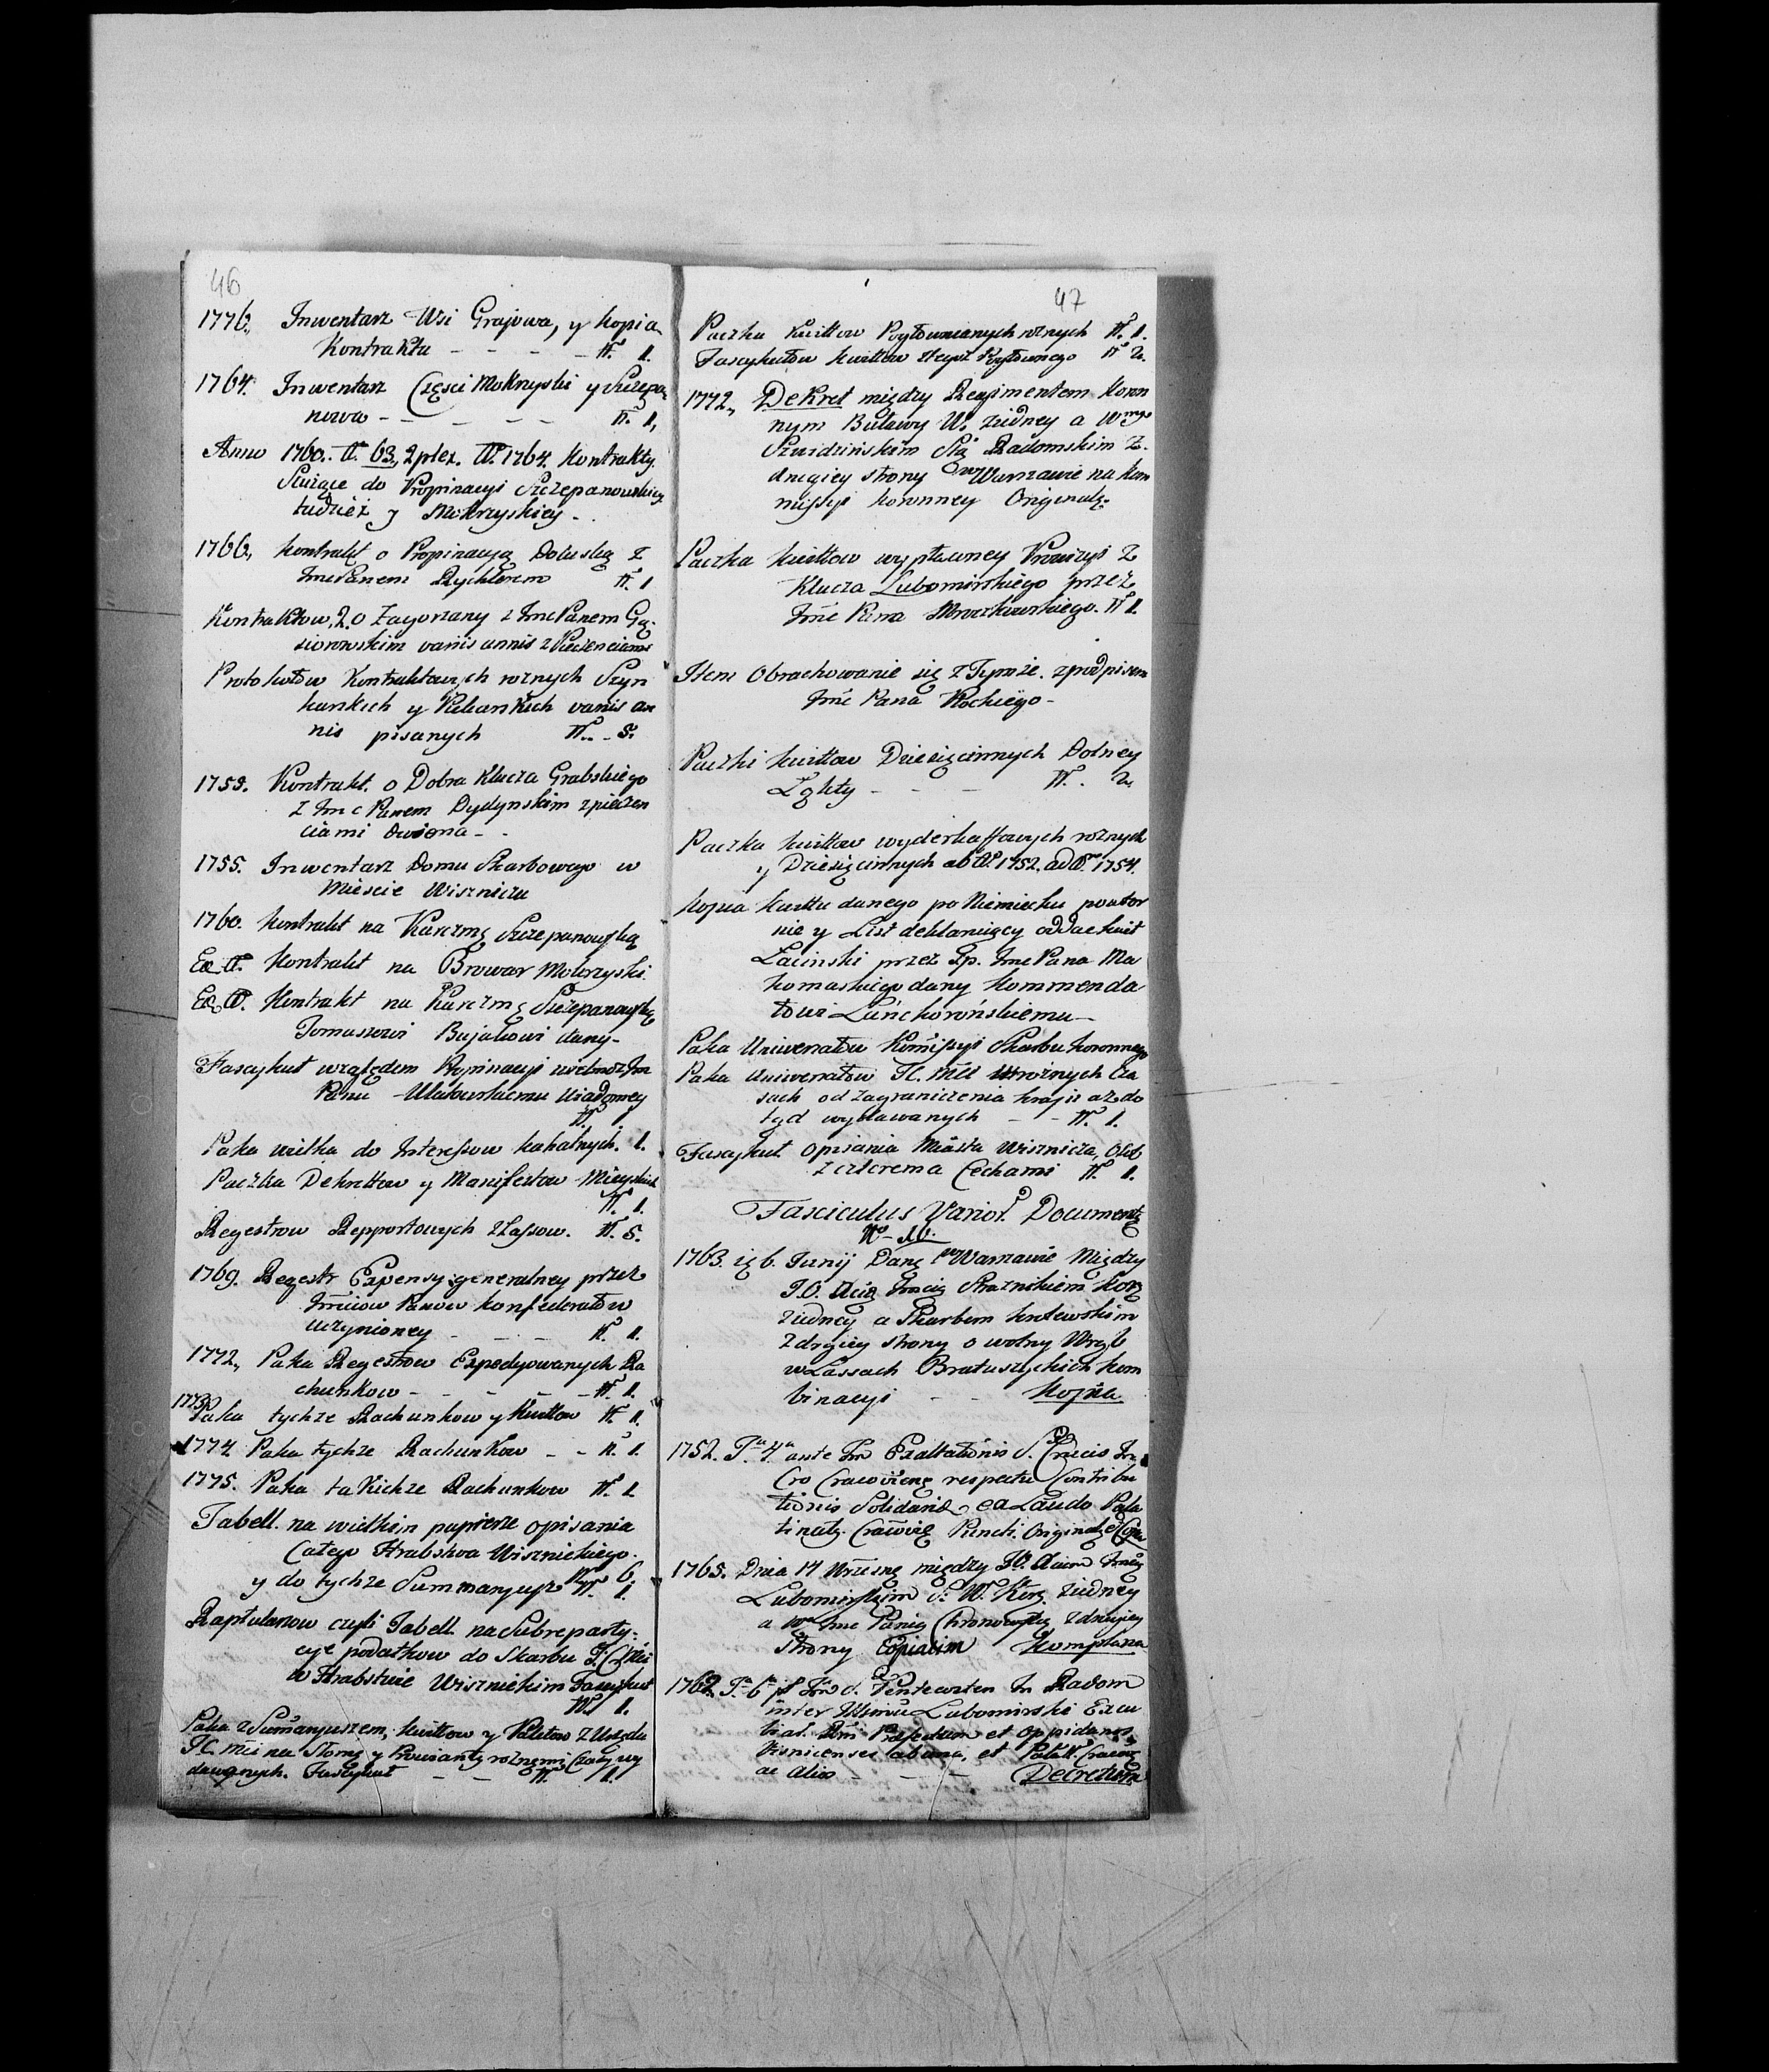 46
1776. Inwentarz Wsi Grajowa, y kopia
Kontraktu - - - - N. 1.
1764. Inwentarz Części Mokrzyski y Szczepa
nowa - - - - - N. 1.
Anno 1760. A. 63, 2plex. A. 1764. Kontrakty
Służące do Propinacyi Szczepanowskiey
tudzież y Mokrzyskiey.
1766. Kontrakt o Propinacyą z
ImcPanem Rychterem N. 1
Kontraktow 2. o Zagorzany z ImcPanem Gą-
siorowskim variis annis z Pieczenciami
Protokułow Kontraktowych roznych Szyn
karskich y variis an
nis pisanych N. - 5.
1753. Kontrakt. o Dobra Klucza Grabskiego
z Imc Panem Dydynskim z pieczen
ciami dwiema -
1755. Inwentarz Domu Skarbowego w
Miescie Wiszniczu
1760. Kontrakt na Karczmę Szczepanowską
Eo A. Kontrakt na Browar Mokrzyski
Eo A. Kontrakt na Karczmę Szczepanowską
Tomaszowi Bujakowi dany -
Fascykuł względem Propinacyi
Panu Ulatowskiemu
N. 1.
Paka wielka do Interessow kahalnych. 1.
Paczka Dekrettow y Manifestow Mieyskich
N. 1.
Regestrow Repportowych z Lassow. N. 5.
1769. Regestr Expensy generalney przez
Imciow Panow konfederatow
uczynioney - - - N. 1.
1772. Paka Regestrow Expedyowanych Ra
chunkow - - - - N. 1.
1773.
Paka tychze Rachunkow y Kwittow N. 1.
1774. Paka tychze Rachunkow - - N. 1.
1775. Paka takichze Rachunkow N. 1
Tabell. na wielkim papierze opisania
Całego Hrabstwa Wisznickiego.
y do tychze Summaryusz N. 6.
N. 1.
Raptularzow czyli Tabell. na Subreparty-
cye podatkow do Skarbu
w Hrabstwie Wisznickim Fascykuł
N. 1.
Paka z Sumaryuszem, kwittow y Paletow z Urzędu
na Słomę y Prowianty roznemi Czasy wy
dawanych. Fascykuł - - N. 1.
47
Paczka Kwittow Pogłownianych roznych N. 1.
Fascykułow kwittow Pogłownego N. 2.
1772. Dekret między Regimentem Koron
nym Buławy W. z iedney a Wmym
Szwidzińskim Stą Radomskim z
drugiey strony w Warszawie na kom
missyi koronney Originalr.
Paczka kwittow Prowizyi z
Klucza Lubomirskiego przez
Imć Pana Mroczkowskiego. N. 1.
Item Obrachowanie się z Tymże. z podpisem
Imć Pana Rockiego -
Paczki kwittow Dziesięcinnych Dolney
Lgkty - - - N. 2.
Paczka kwittow wyderkaffowych roznych
y Dziesięcinnych ab A. 1752. ad A. 1754.
Kopia kwittu danego po Niemiecku powtor
nie y List deklaruiący oddac kwit
Łacinski przez Sp. Imc Pana Ma
komaskiego dany Kommenda
towi Lanckorońskiemu -
Paka Uniwersałow Komissyi Skarbu koronnego
Paka Uniwersałow w roznych Cza
sach od zagraniczenia kraju az do
tąd wydawanych - - N. 1.
Fascykuł opisania Miasta Wisznicza, Osób
z czterema Cechami N. 1.
Fasciculus Varior. Document.
1763. 6. Junij Dane w Warszawie Między
J.O. Xcia Imcią Straznikiem Kor.
z iedney a Skarbem krolewskim
z drgiey strony o wolny Wręb
w Lassach Bratuszyckich kom
binacyi - - Kopia
1752. Fa 4a ante Fm Exaltationis S. Crucis In
Cro Cracoviene respectu Contribu
tionis Solidaria ex Laudo Pala
tinatg. Cracovię Punct. Original et Copia
1765. Dnia 14 między JO. Xciem Imcią
Lubomirskim z iedney
a Imc Panią Chronowską z drugiey
Strony Copiatim Komplana
1762. Fa 6a Fm S. Pentecosten In Radom
inter Lubomirski Excu
biat. et oppidanos
Visnicenses ab una, et Palat. Cracov.
ac alios - - - Decretum